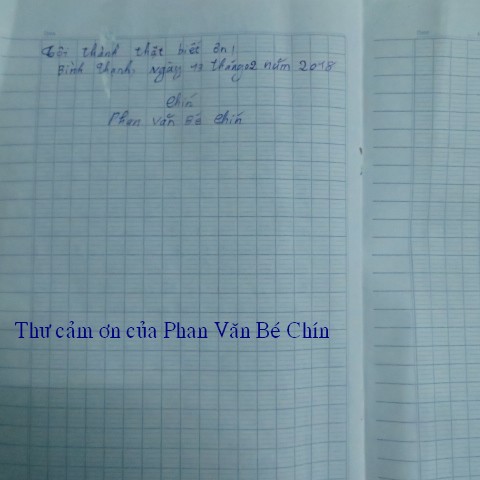 Tôi thành thật biết ơn!
Bình Thạnh, ngày 13 tháng 02 năm 2018
Chín
Phan Văn Bé Chín
Thư cảm ơn của Phan Văn Bé Chín